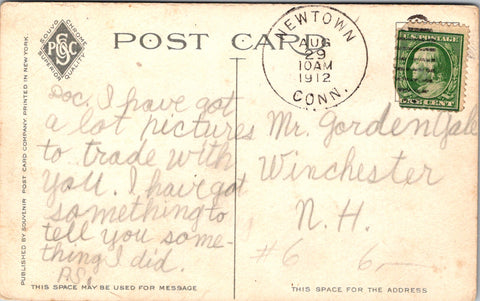 SOUVO CHROME
PSC Co
SUPERIOR QUALITY
POST CARD
NEWTOWN
D
AUG
29
10AM
1912
CONN.
U.S. POSTAGE
ONE CENT
PUBLISHED BY SOUVENIR POST CARD COMPANY, PRINTED IN NEW YORK.
Doc. I have got
a lot pictures
to trade with
you. I have got
something to
tell you some-
thing I did.
Mr. Gorden Gale
Winchester
N. H.
#6 6
THIS SPACE MAY BE USED FOR MESSAGE
THIS SPACE FOR THE ADDRESS